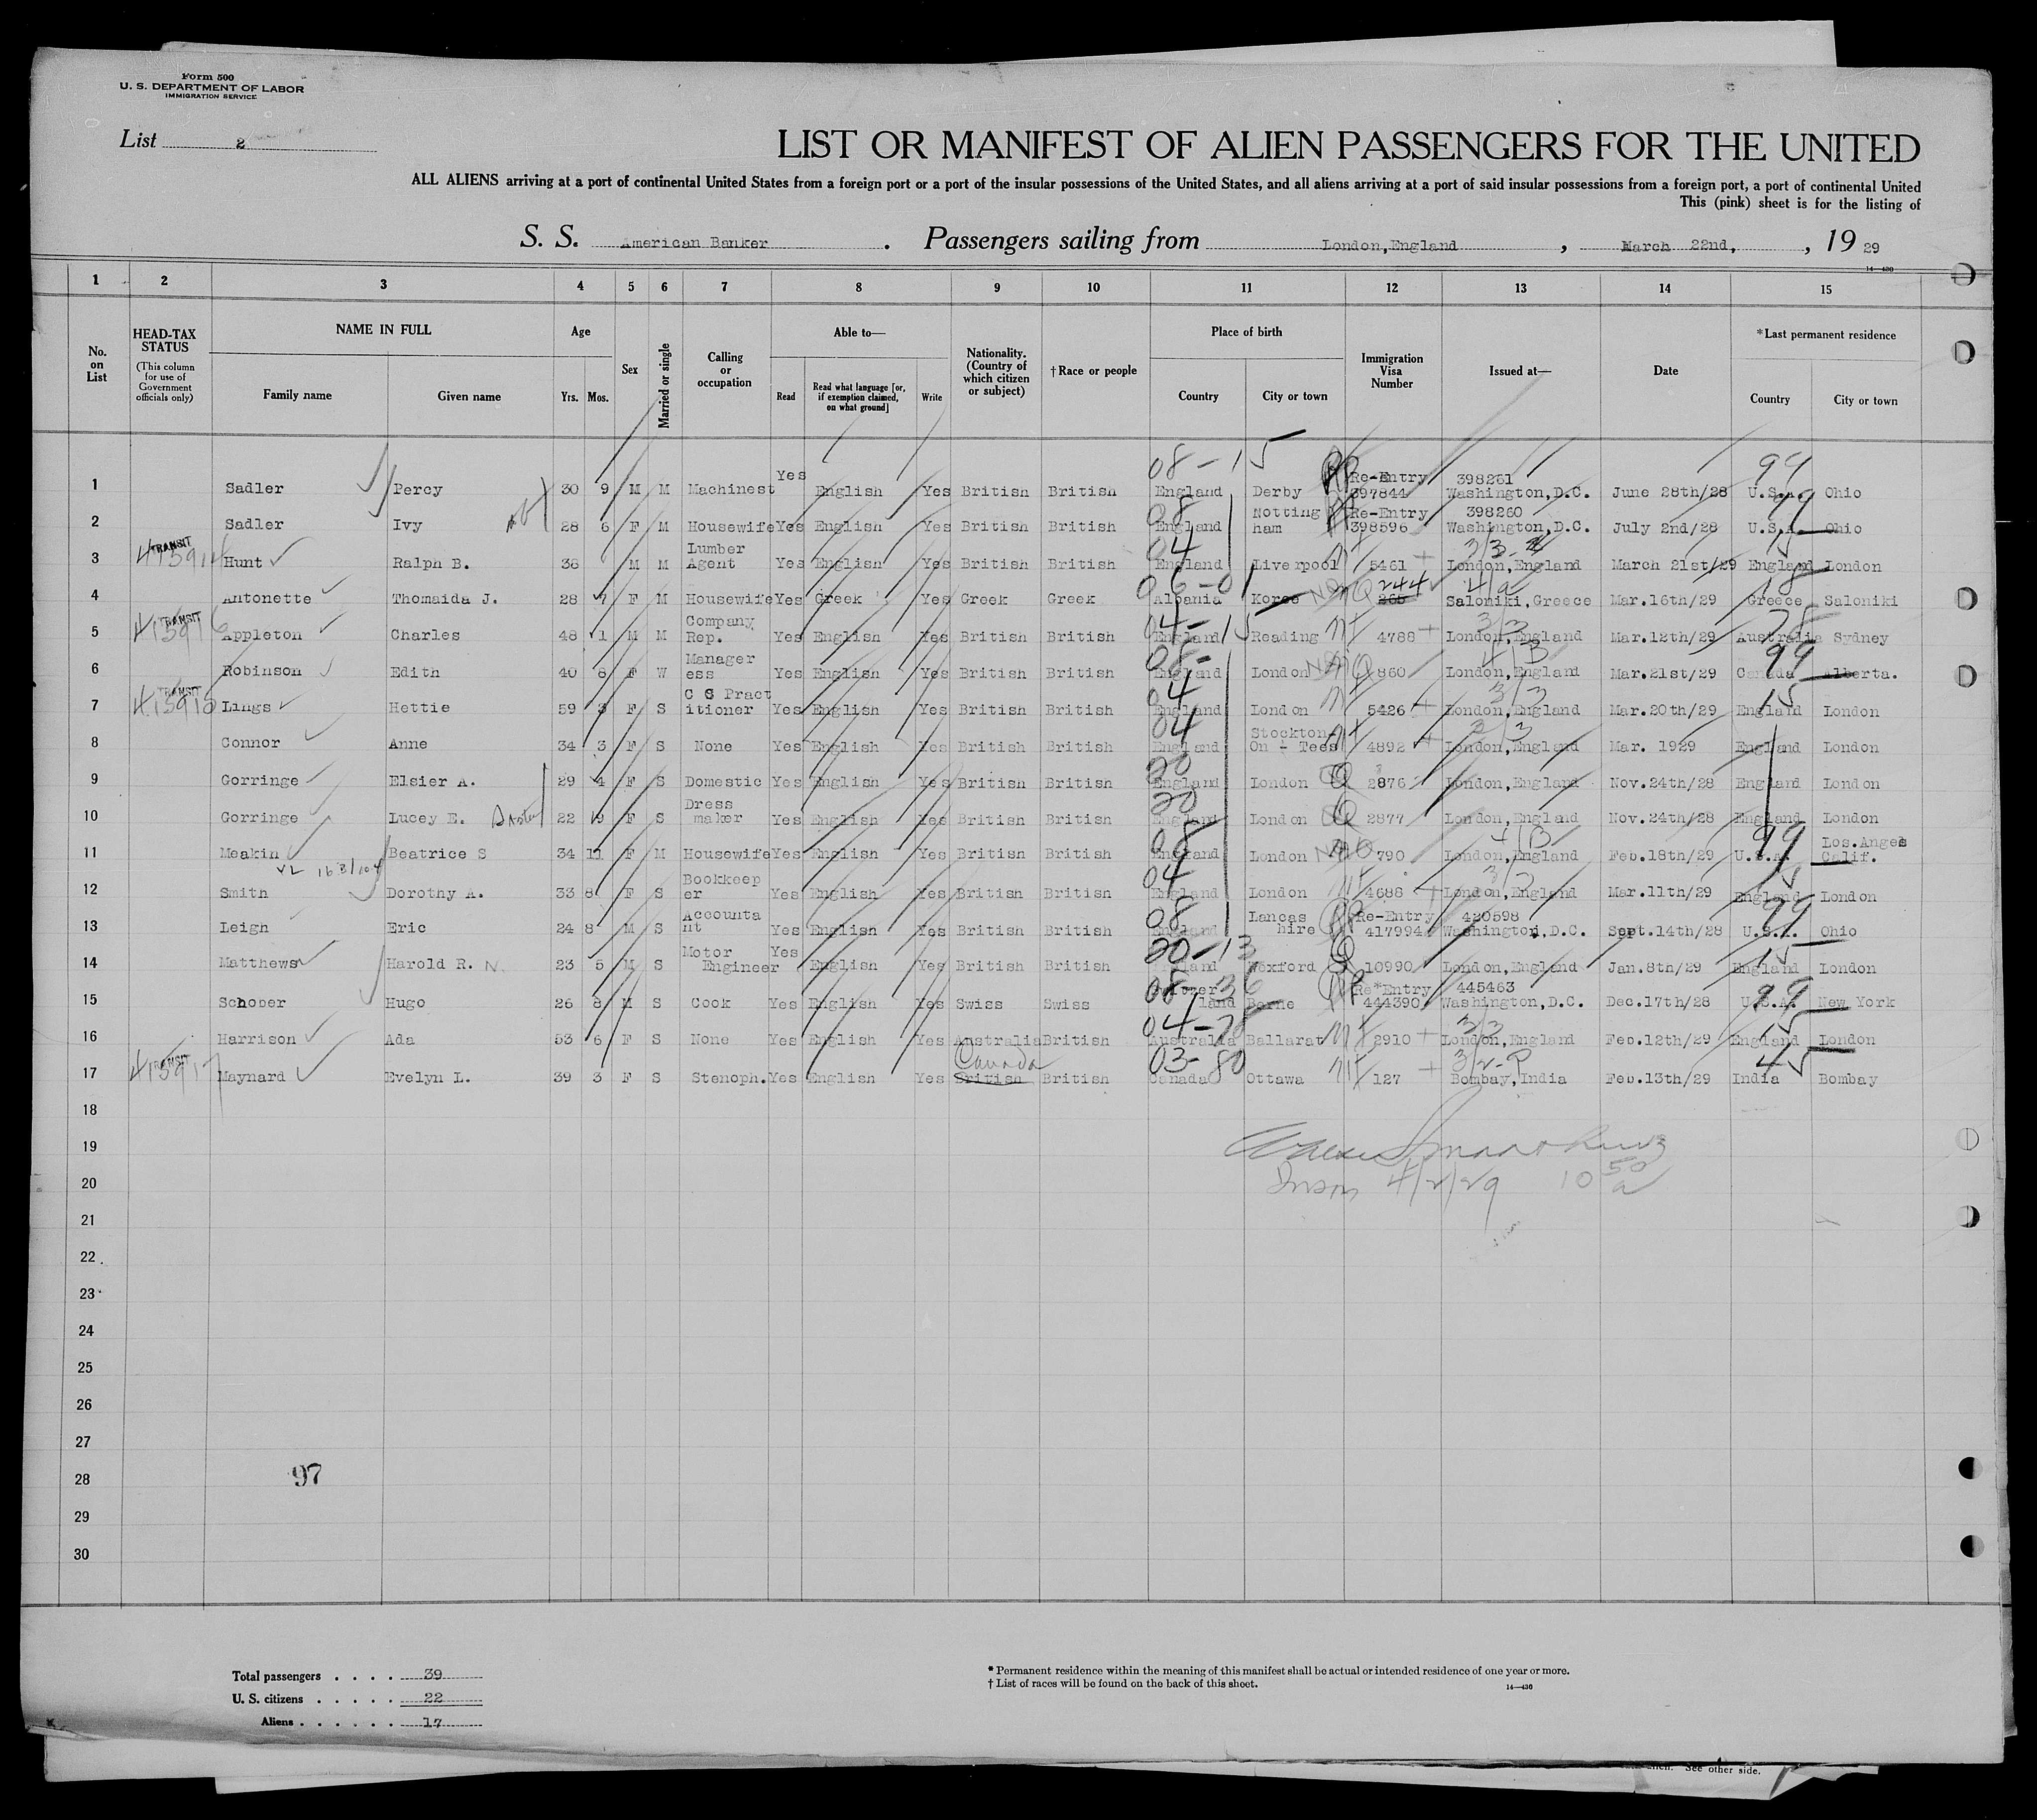 Form 500
U. S. DEPARTMENT OF LABOR
IMMIGRATION SERVICE
List 2
LIST OR MANIFEST OF ALIEN PASSENGERS FOR THE UNITED
ALL ALIENS arriving at a port of continental United States from a foreign port or a port of the insular possessions of the United States, and all aliens arriving at a port of said insular possessions from a foreign port, a port of continental United
This (pink) sheet is for the listing of
S. S. American Banker . Passengers sailing from London,England , March 22nd, , 19 29
14—430
1 2 3 4 5 6 7 8 9 10 11 12 13 14 15
No. on List
HEAD-TAX STATUS (This column for use of Government officials only)
NAME IN FULL Family name Given name
Age Yrs. Mos.
Sex
Married or single
Calling or occupation
Able to— Read Read what language [or, if exemption claimed, on what ground] Write
Nationality. (Country of which citizen or subject)
†Race or people
Place of birth Country City or town
Immigration Visa Number
Issued at—
Date
*Last permanent residence Country City or town
08-15 99
1 Sadler Percy 30 9 M M Machinest Yes English Yes British British England Derby Re-Entry 397844 398261 Washington,D.C. June 28th/28 U.S.A. Ohio
2 Sadler Ivy 28 6 F M Housewife Yes English Yes British British 08 England Nottingham Re-Entry 398596 398260 Washington,D.C. July 2nd/28 99 U.S.A. Ohio
3 TRANSIT Hunt Ralph B. 38 M M Lumber Agent Yes English Yes British British 04 England Liverpool 5461 London,England March 21st/29 15 England London
4 Antonette Thomaida J. 28 7 F M Housewife Yes Greek Yes Greek Greek 06-01 Albania Q 244 Saloniki,Greece Mar.16th/29 18 Greece Saloniki
5 TRANSIT 413916 Appleton Charles 48 1 M M Company Rep. Yes English Yes British British 04-15 England Reading 4788 3/3 London,England Mar.12th/29 78 Australia Sydney
6 Robinson Edith 40 8 F W Manageress Yes English Yes British British 08- England London Q 860 4/B London,England Mar.21st/29 99 Canada Alberta.
7 TRANSIT Lings Hettie 59 3 F S C S Practitioner Yes English Yes British British 04 England London 5426 3/3 London,England Mar.20th/29 15 England London
8 Connor Anne 34 3 F S None Yes English Yes British British 04 England Stockton On - Tees 4892 3/3 London,England Mar. 1929 England London
9 Gorringe Elsier A. 29 4 F S Domestic Yes English Yes British British 20 England London Q 2876 London,England Nov.24th/28 England London
10 Gorringe Lucey E. 22 F S Dress maker Yes English Yes British British 20 England London Q 2877 London,England Nov.24th/28 England London
11 Meakin Beatrice S 34 11 F M Housewife Yes English Yes British British 08 England London 790 4/B London,England Feb.18th/29 99 U.S.A. Los.Angeles Calif.
12 Smith Dorothy A. 33 8 F S Bookkeeper Yes English Yes British British 04 England London 4688 3/3 London,England Mar.11th/29 15 England London
13 Leigh Eric 24 8 M S Accountant Yes English Yes British British 08 England Lancashire Re-Entry 417994 420598 Washington,D.C. Sept.14th/28 99 U.S.A. Ohio
14 Matthews Harold R. N. 23 5 M S Motor Engineer Yes English Yes British British 20-13 England Wexford Q 10990 London,England Jan.8th/29 15 England London
15 Schober Hugo 26 8 M S Cook Yes English Yes Swiss Swiss 08 36 Switzerland Berne Re*Entry 444390 445463 Washington,D.C. Dec.17th/28 99 U.S.A. New York
16 Harrison Ada 53 6 F S None Yes English Yes Australia British 04-78 Australia Ballarat 2910 3/3 London,England Feb.12th/29 15 England London
17 TRANSIT 413917 Maynard Evelyn L. 39 3 F S Stenoph. Yes English Yes Canada British British 03-80 Canada Ottawa 127 3/2-P Bombay,India Feb.13th/29 45 India Bombay
18
19
20 4/2/29 10 50 a
21
22
23
24
25
26
27
28 97
29
30
Total passengers . . . . 39
U. S. citizens . . . . . 22
Aliens . . . . . . 17
* Permanent residence within the meaning of this manifest shall be actual or intended residence of one year or more.
† List of races will be found on the back of this sheet.
14—430
See other side.